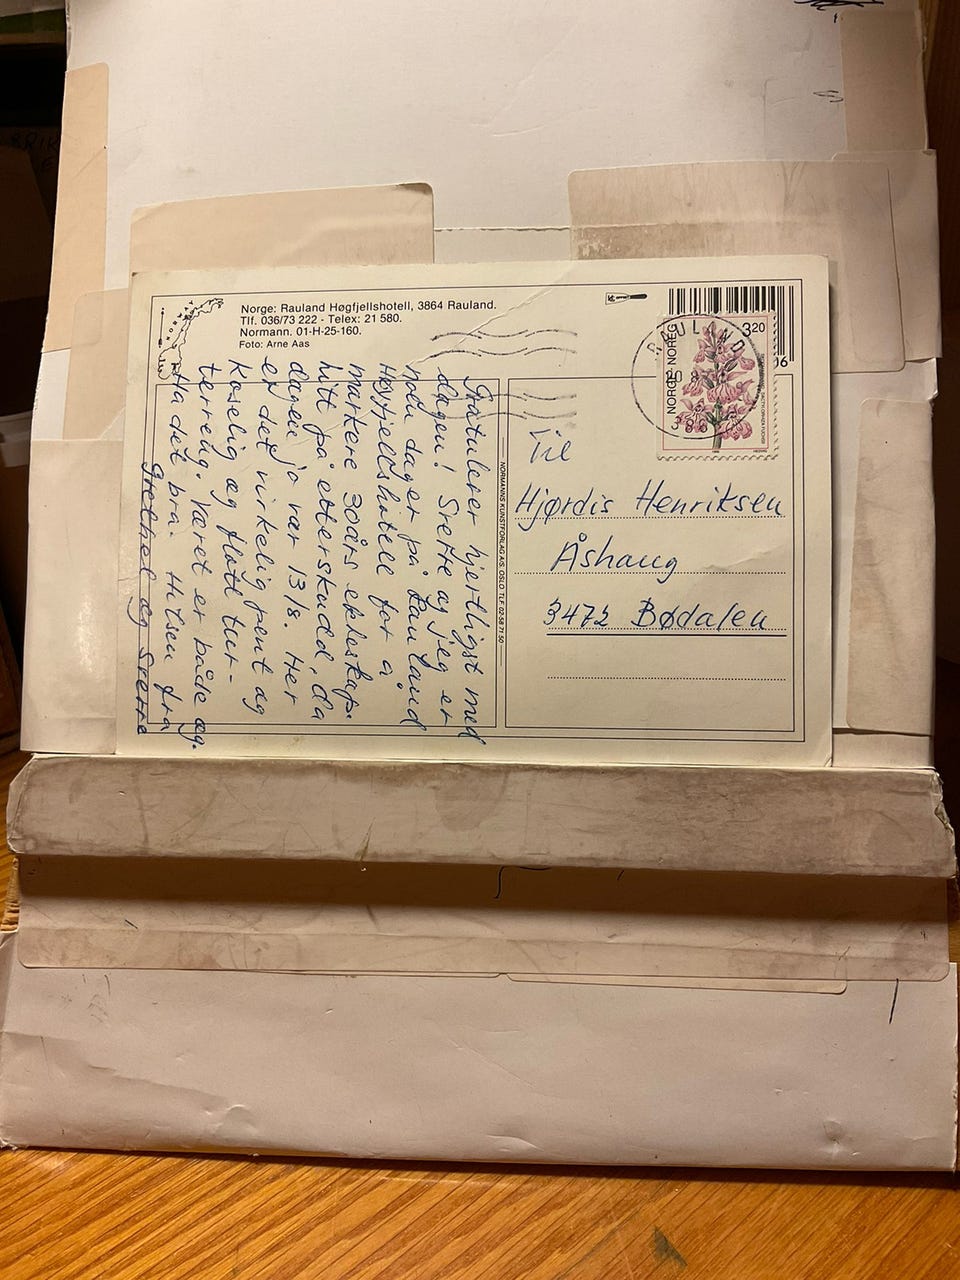 Norge: Rauland Høgfjellshotell, 3864 Rauland.
Tlf. 036/73 222 - Telex: 21 580.
Normann. 01-H-25-160.
Foto: Arne Aas
NORWAY
Gratulerer hjertligst med
dagen! Sverre og jeg er
noen dager på Rauland
Høyfjellshotell for å
markere 30års ekteskap.
litt på etterskudd, da
dagen jo var 13/8. Her
er det virkelig pent og
koselig og flott tur-
terreng. Været er både og.
Ha det bra. Hilsen fra
Grethel og Sverre
NORMANNS KUNSTFORLAG A/S, OSLO TLF. 02-58 71 50
RAULAND
NORGE NOREG
3.20
16
Til
Hjørdis Henriksen
Åshaug
3472 Bødalen